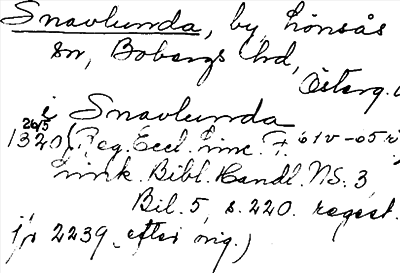 Snavlunda, by, Lönsås
sn, Bobergs hd,
Österg.
i Snavlunda
26/5
1320 (Reg. Eccl. Linc. F. 61v-65r
Link. Bibl. Handl. NS. 3,
Bil. 5, s. 220. regest.
jfr 2239, efter orig.)